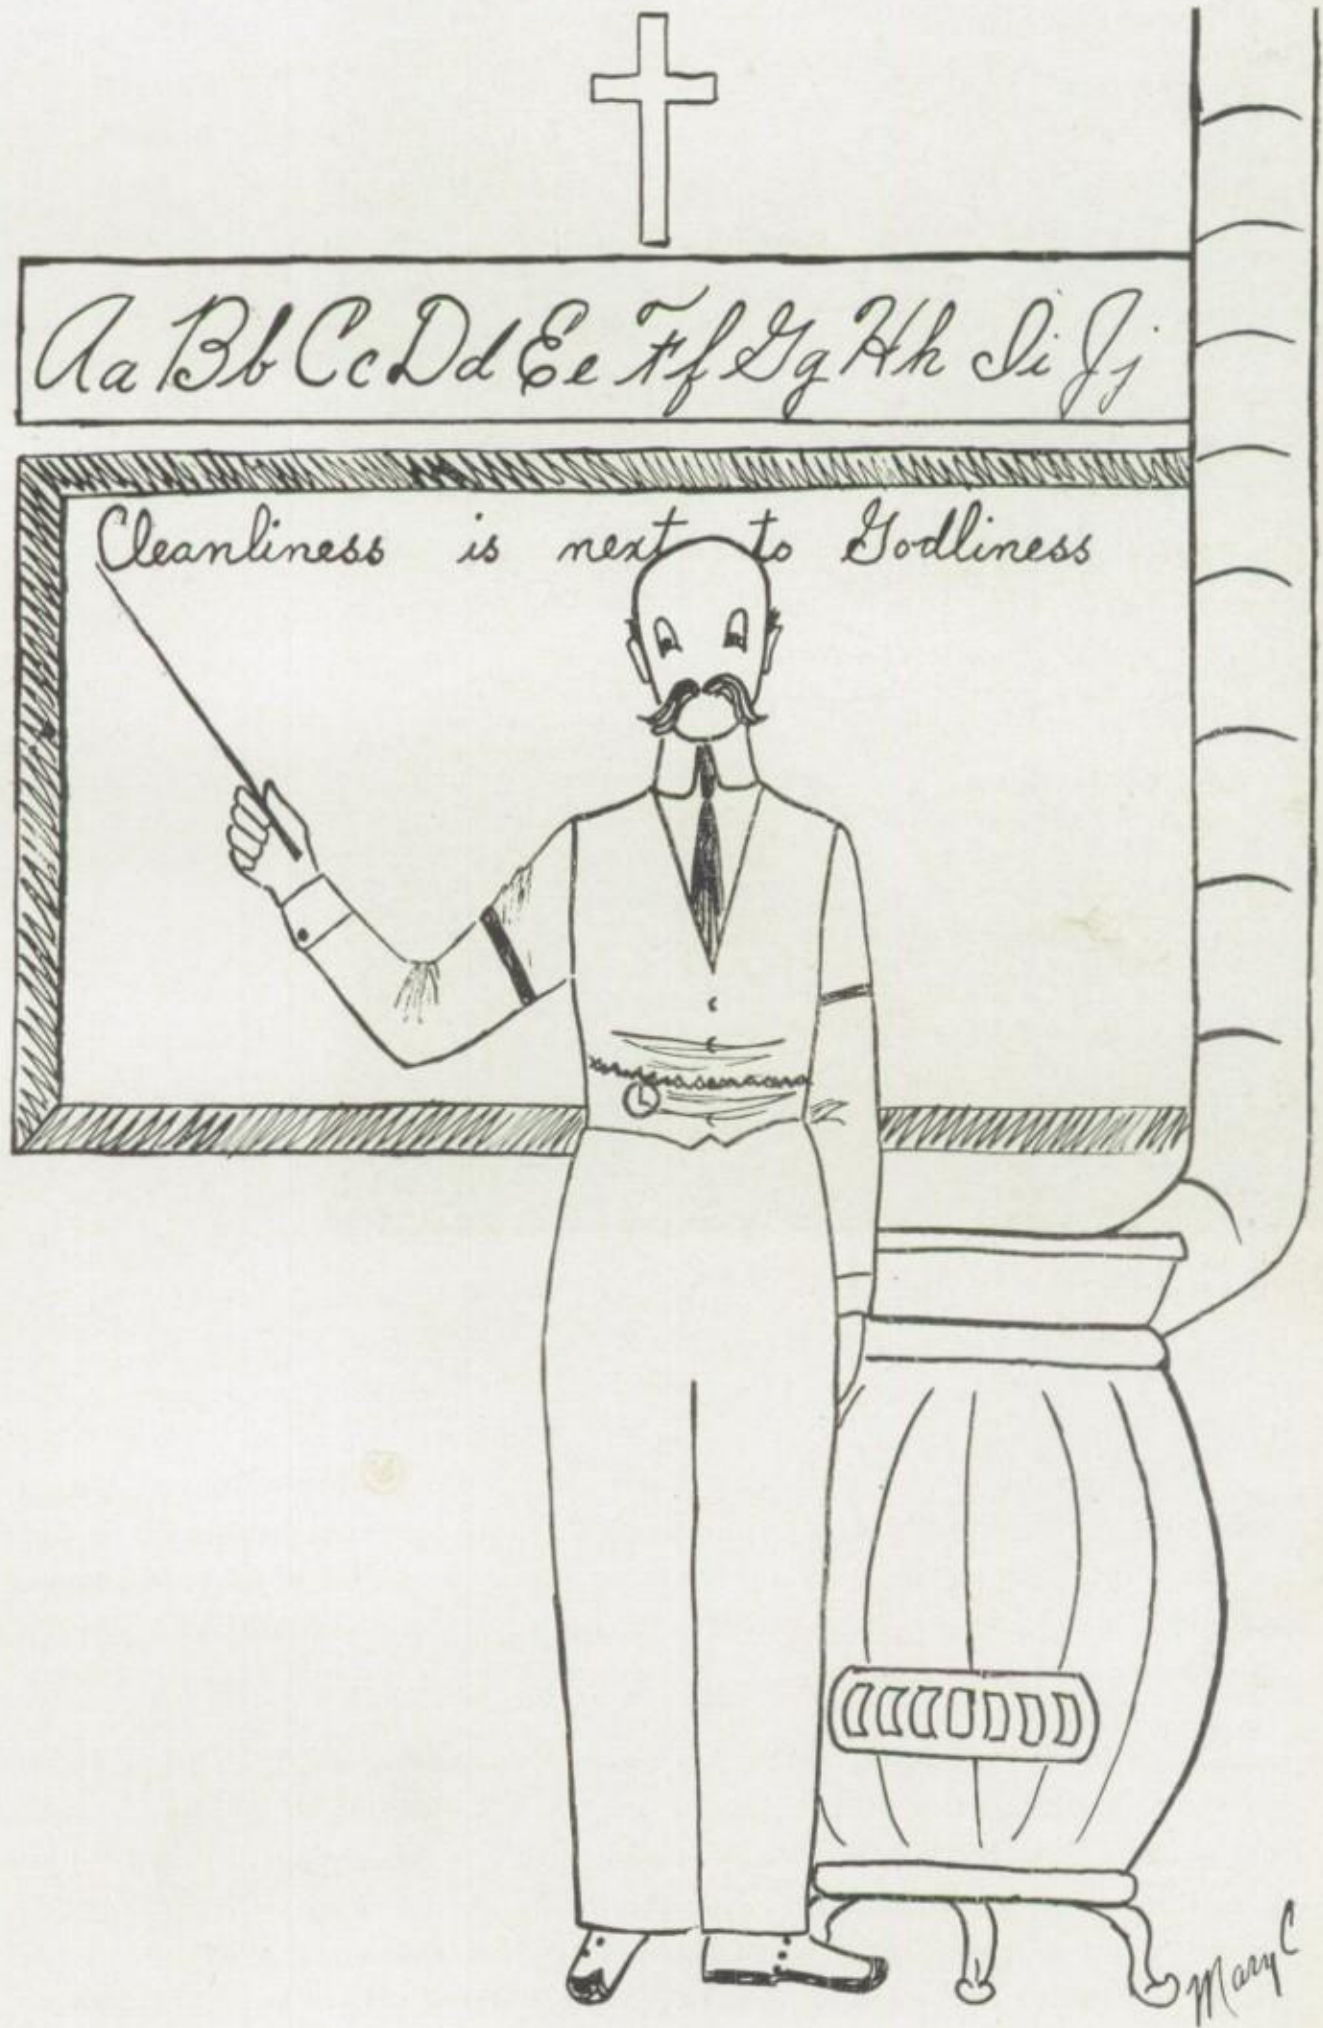 Aa Bb Cc Dd Ee Ff Gg Hh Ii Jj
Cleanliness is next to Godliness
Mary C